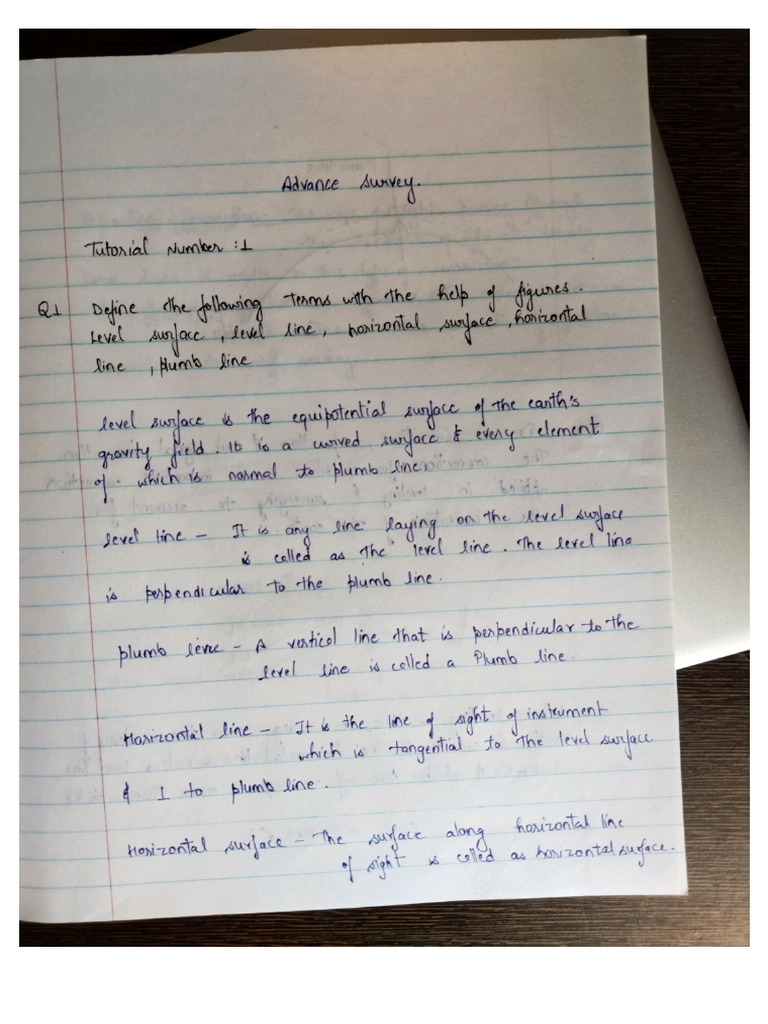 Advance survey.
Tutorial Number :1
Q1 Define the following terms with the help of figures.
Level surface, level line, horizontal surface, horizontal
line, plumb line
level surface is the equipotential surface of the earth's
gravity field. It is a curved surface & every element
of which is normal to plumb line.
level line - It is any line laying on the level surface
is called as the level line. The level line
is perpendicular to the plumb line.
plumb line - A vertical line that is perpendicular to the
level line is called a Plumb line.
Horizontal line - It is the line of sight of instrument
which is tangential to the level surface
& ⊥ to plumb line.
Horizontal surface - The surface along horizontal line
of sight is called as horizontal surface.